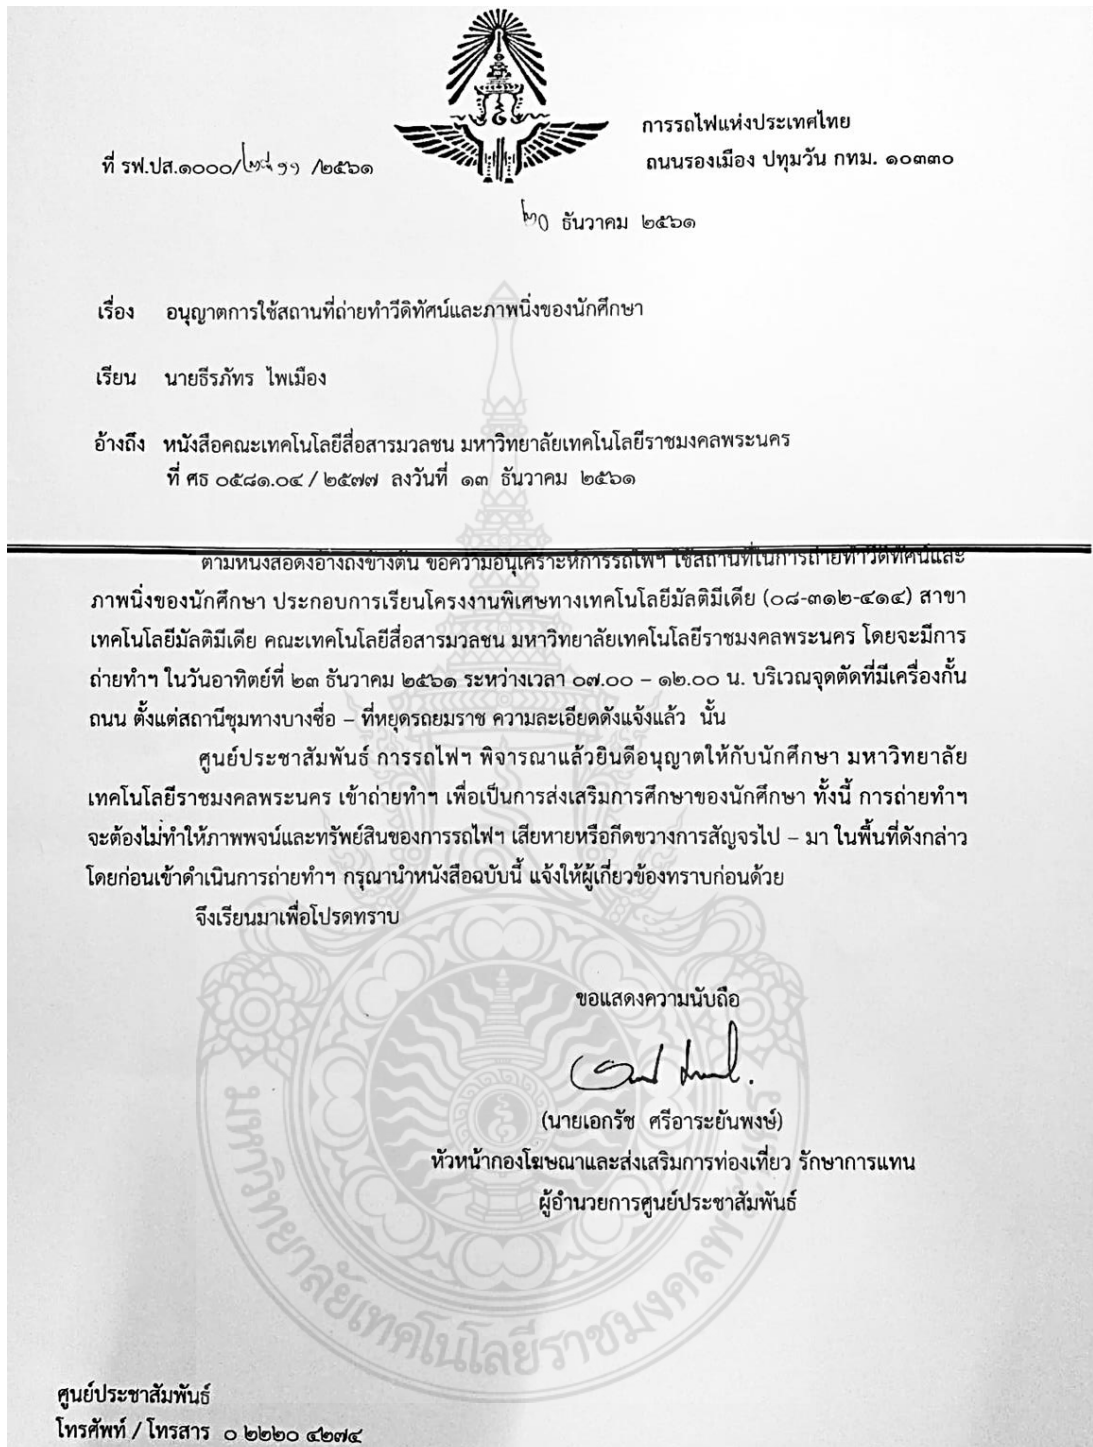 การรถไฟแห่งประเทศไทย
ที่ รฟ.ปส.๑๐๐๐/ /๒๕๖๑
ถนนรองเมือง ปทุมวัน กทม. ๑๐๓๓๐
๒๐ ธันวาคม ๒๕๖๑
เรื่อง อนุญาตการใช้สถานที่ถ่ายทำวีดิทัศน์และภาพนิ่งของนักศึกษา
เรียน นายธีรภัทร ไพเมือง
อ้างถึง หนังสือคณะเทคโนโลยีสื่อสารมวลชน มหาวิทยาลัยเทคโนโลยีราชมงคลพระนคร
ที่ ศธ ๐๕๘๑.๐๔ / ๒๕๗๗ ลงวันที่ ๑๓ ธันวาคม ๒๕๖๑
ตามหนังสือดังอ้างถึงข้างต้น ขอความอนุเคราะห์การรถไฟฯ ใช้สถานที่ในการถ่ายทำวีดิทัศน์และ
ภาพนิ่งของนักศึกษา ประกอบการเรียนโครงงานพิเศษทางเทคโนโลยีมัลติมีเดีย (๐๘-๓๑๒-๔๑๔) สาขา
เทคโนโลยีมัลติมีเดีย คณะเทคโนโลยีสื่อสารมวลชน มหาวิทยาลัยเทคโนโลยีราชมงคลพระนคร โดยจะมีการ
ถ่ายทำฯ ในวันอาทิตย์ที่ ๒๓ ธันวาคม ๒๕๖๑ ระหว่างเวลา ๐๗.๐๐ – ๑๒.๐๐ น. บริเวณจุดตัดที่มีเครื่องกั้น
ถนน ตั้งแต่สถานีชุมทางบางซื่อ – ที่หยุดรถยมราช ความละเอียดดังแจ้งแล้ว นั้น
ศูนย์ประชาสัมพันธ์ การรถไฟฯ พิจารณาแล้วยินดีอนุญาตให้กับนักศึกษา มหาวิทยาลัย
เทคโนโลยีราชมงคลพระนคร เข้าถ่ายทำฯ เพื่อเป็นการส่งเสริมการศึกษาของนักศึกษา ทั้งนี้ การถ่ายทำฯ
จะต้องไม่ทำให้ภาพพจน์และทรัพย์สินของการรถไฟฯ เสียหายหรือกีดขวางการสัญจรไป – มา ในพื้นที่ดังกล่าว
โดยก่อนเข้าดำเนินการถ่ายทำฯ กรุณานำหนังสือฉบับนี้ แจ้งให้ผู้เกี่ยวข้องทราบก่อนด้วย
จึงเรียนมาเพื่อโปรดทราบ
ขอแสดงความนับถือ
(นายเอกรัช ศรีอาระยันพงษ์)
หัวหน้ากองโฆษณาและส่งเสริมการท่องเที่ยว รักษาการแทน
ผู้อำนวยการศูนย์ประชาสัมพันธ์
มหาวิทยาลัยเทคโนโลยีราชมงคลพระนคร
ศูนย์ประชาสัมพันธ์
โทรศัพท์ / โทรสาร ๐ ๒๒๒๐ ๔๒๗๔